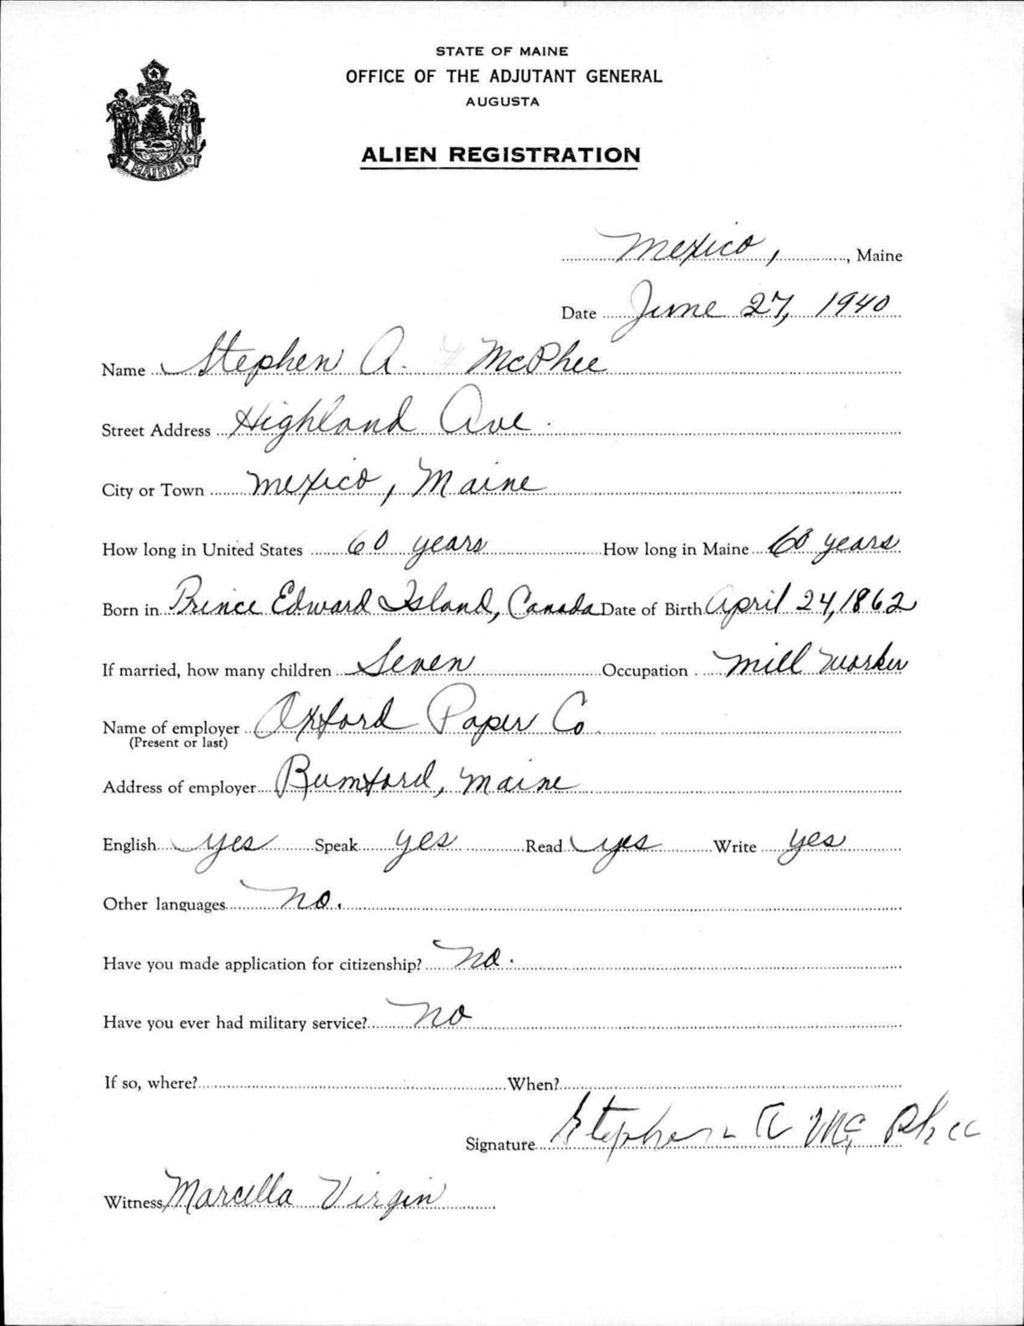 STATE OF MAINE
OFFICE OF THE ADJUTANT GENERAL
AUGUSTA
ALIEN REGISTRATION
MAINE
Mexico, , Maine
Date June 27, 1940
Name Stephen A. McPhee
Street Address Highland Ave.
City or Town Mexico, Maine
How long in United States 60 years How long in Maine 60 years
Born in Prince Edward Island, Canada Date of Birth April 24, 1862
If married, how many children Seven Occupation Mill worker
Name of employer Oxford Paper Co
(Present or last)
Address of employer Rumford, Maine
English yes Speak yes Read yes Write yes
Other languages no.
Have you made application for citizenship? no.
Have you ever had military service? no
If so, where? When?
Signature Stephen A McPhee
Witness Marcella Virgin